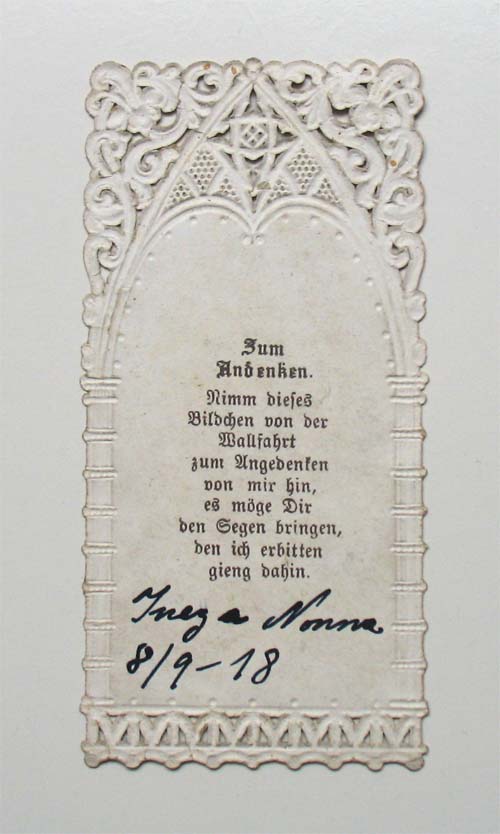 Zum
Andenken.
Nimm dieses
Bildchen von der
Wallfahrt
zum Angedenken
von mir hin,
es möge Dir
den Segen bringen,
den ich erbitten
gieng dahin.
Nonna
8/9-18